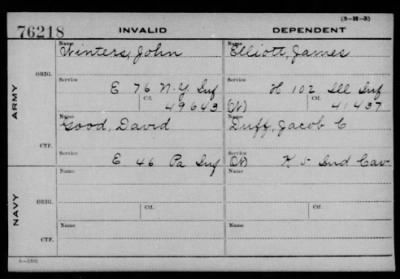 (3-21-3)
76218 INVALID DEPENDENT
ARMY
ORIG.
Name
Winters, John
Name
Elliott, James
Service
E 76 N.Y. Inf
Service
H 102 Ill Inf
Ctf.
49643
(W)
Ctf.
41437
CTF.
Name
Good, David
Name
Duff, Jacob C
Service
E 46 Pa Inf
Service
(W) K 5 Ind Cav
NAVY
ORIG.
Name
Name
Service
Ctf.
Service
Ctf.
CTF.
Name
Name